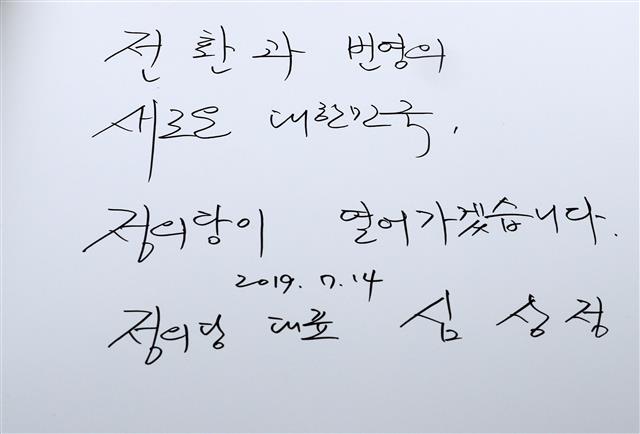 전환과 번영의
새로운 대한민국,
정의당이 열어가겠습니다.
2019. 7. 14
정의당 대표 심상정